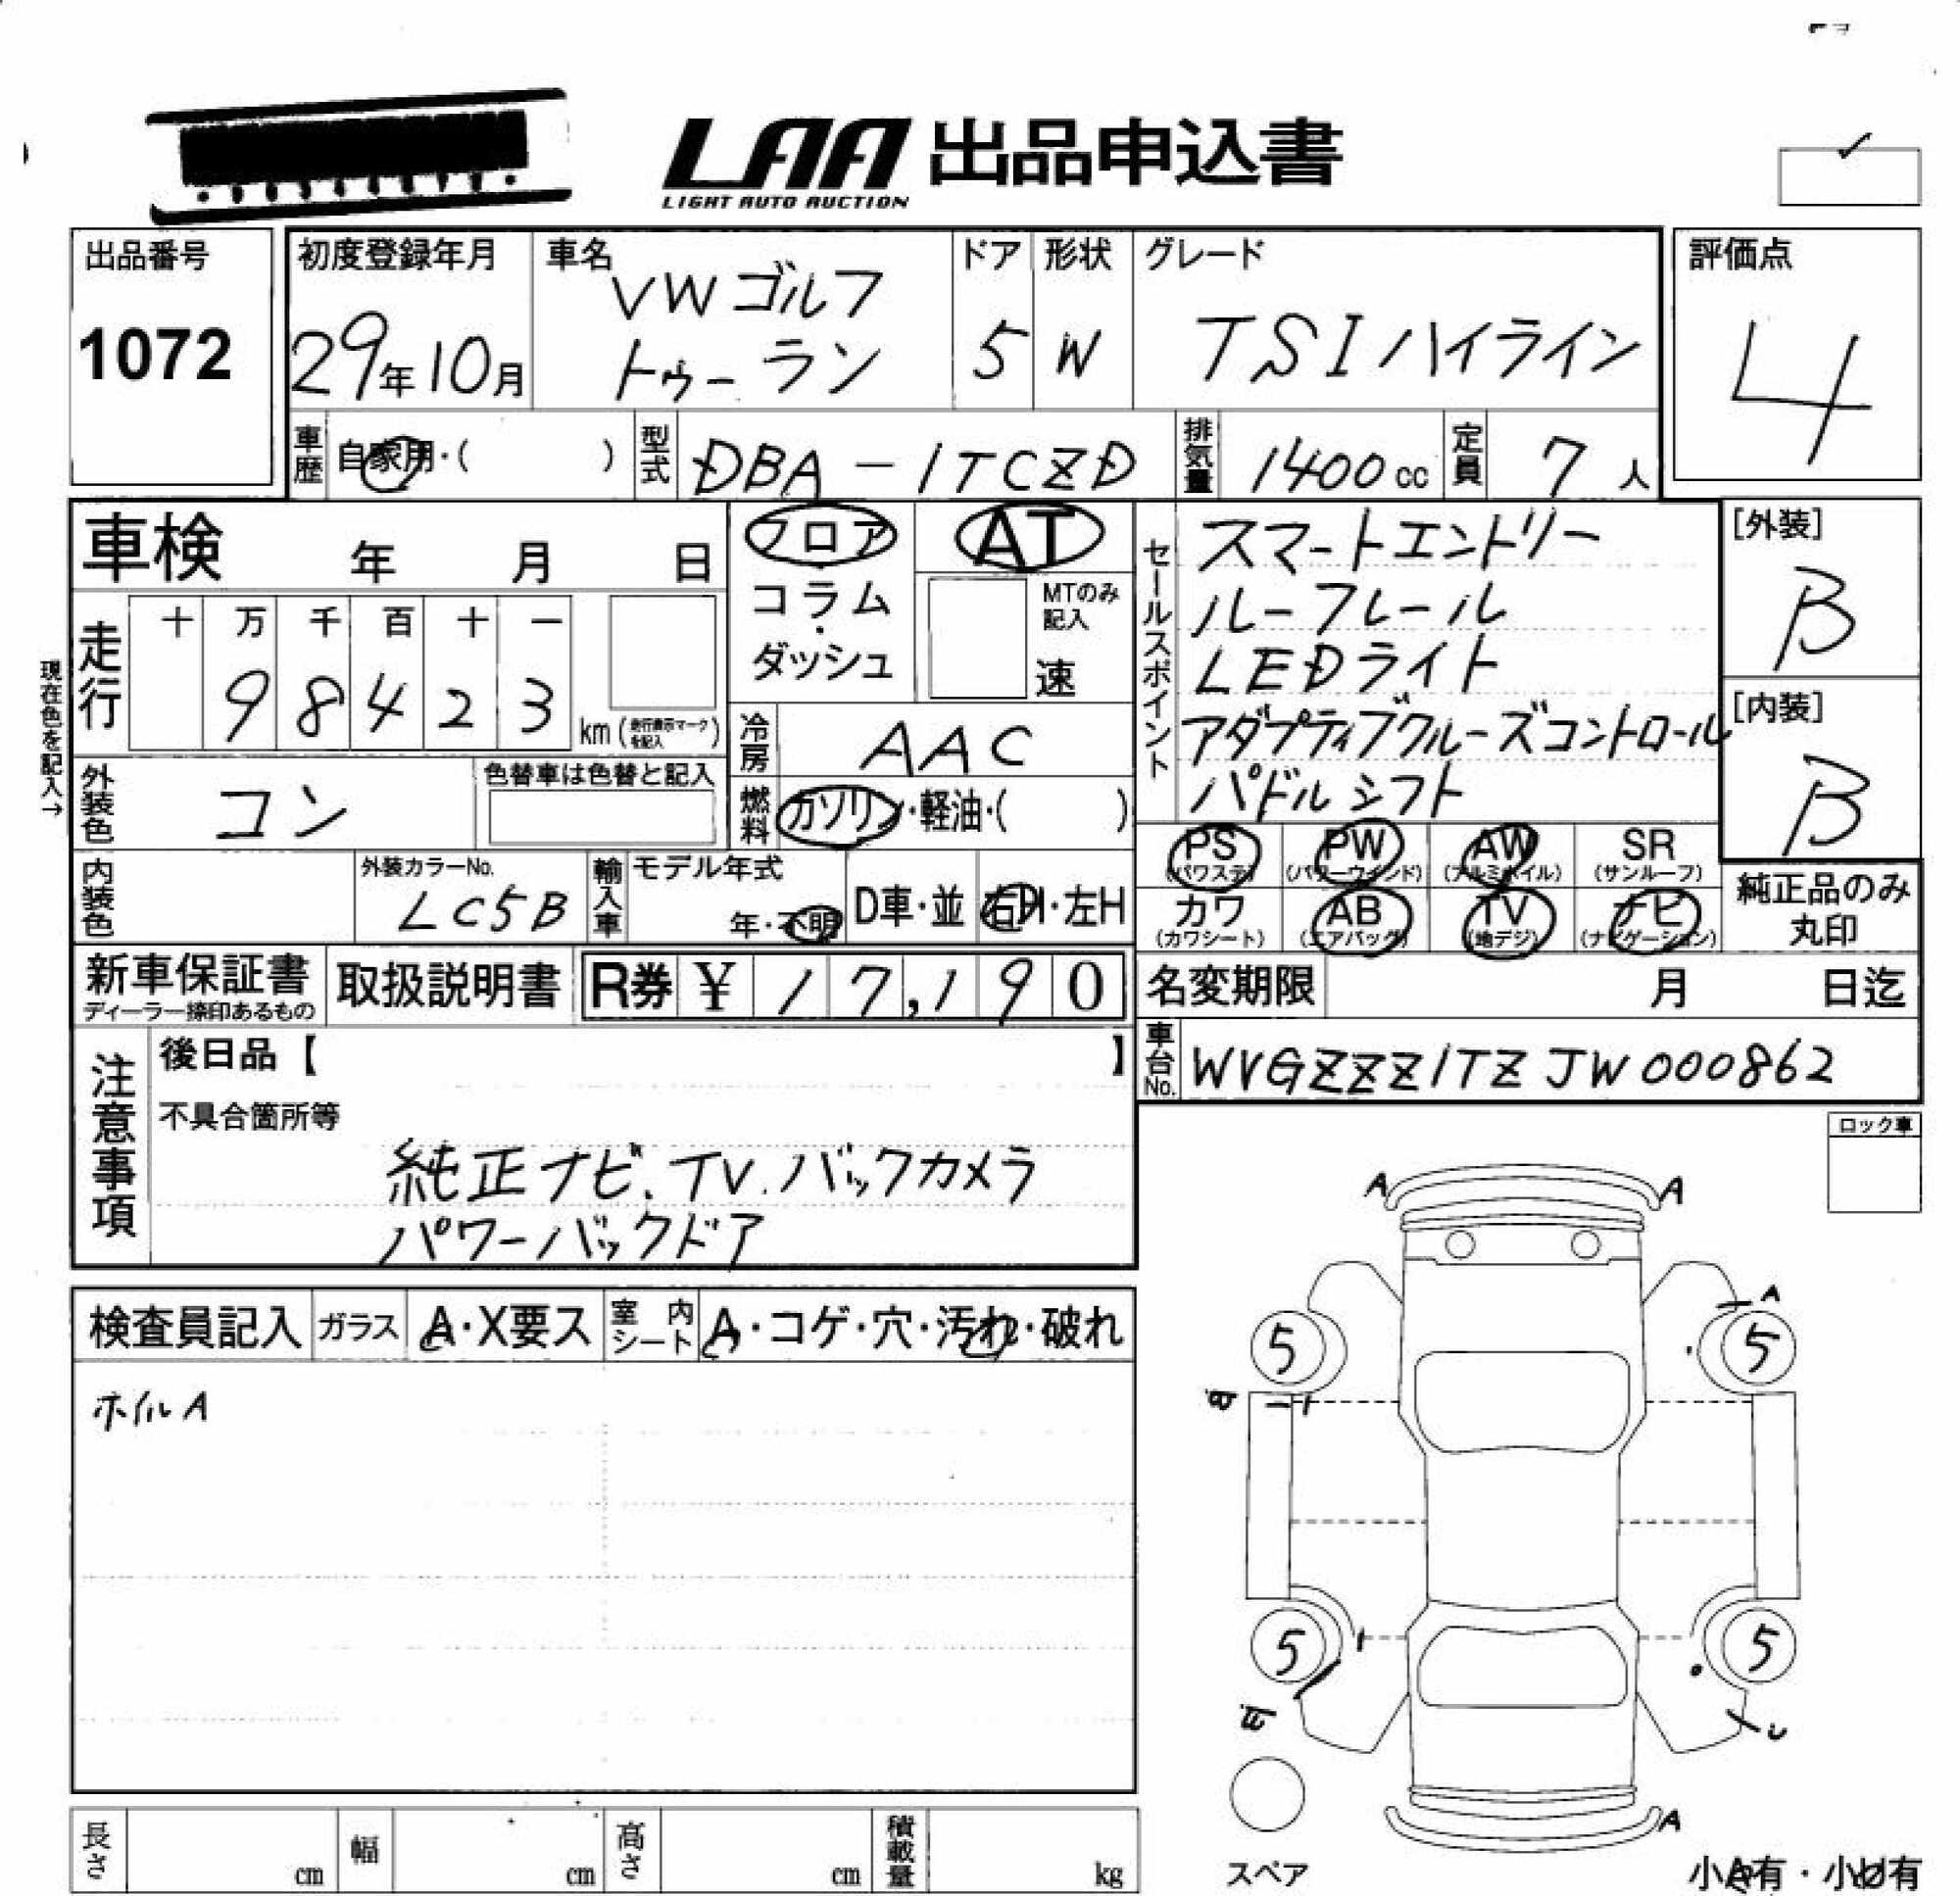 LAA 出品申込書
LIGHT AUTO AUCTION
出品番号
1072
初度登録年月
29年10月
車名
VWゴルフ
トゥーラン
ドア
5
形状
W
グレード
TSIハイライン
評価点
4
車歴
自家用・( )
型式
DBA-1TCZD
排気量
1400cc
定員
7人
車検 年 月 日
フロア・コラム・ダッシュ
AT
MTのみ記入
速
セールスポイント
スマートエントリー
ルーフレール
LEDライト
アダプティブクルーズコントロール
パドルシフト
[外装]
B
[内装]
B
現在色を記入→
走行
十 万 千 百 十 一
9 8 4 2 3
km(走行表示マークを記入)
冷房
AAC
外装色
コン
色替車は色替と記入
燃料
ガソリン・軽油・( )
PS
(パワステ)
PW
(パワーウインド)
AW
(アルミホイル)
SR
(サンルーフ)
カワ
(カワシート)
AB
(エアバッグ)
TV
(地デジ)
ナビ
(ナビゲーション)
純正品のみ
丸印
内装色
外装カラーNo.
LC5B
輸入車
モデル年式
年・不明
D車・並
右H・左H
新車保証書
ディーラー捺印あるもの
取扱説明書
R券 ¥ 17,190
名変期限 月 日迄
車台No.
WVGZZZ1TZJW000862
注意事項
後日品【 】
不具合箇所等
純正ナビ.TV.バックカメラ
パワーバックドア
ロック車
A A
A
5 5
5 5
A
検査員記入
ガラス
A・X要ス
室内シート
A・コゲ・穴・汚れ・破れ
ホイルA
長さ cm
幅 cm
高さ cm
積載量 kg
スペア
小A有・小U有